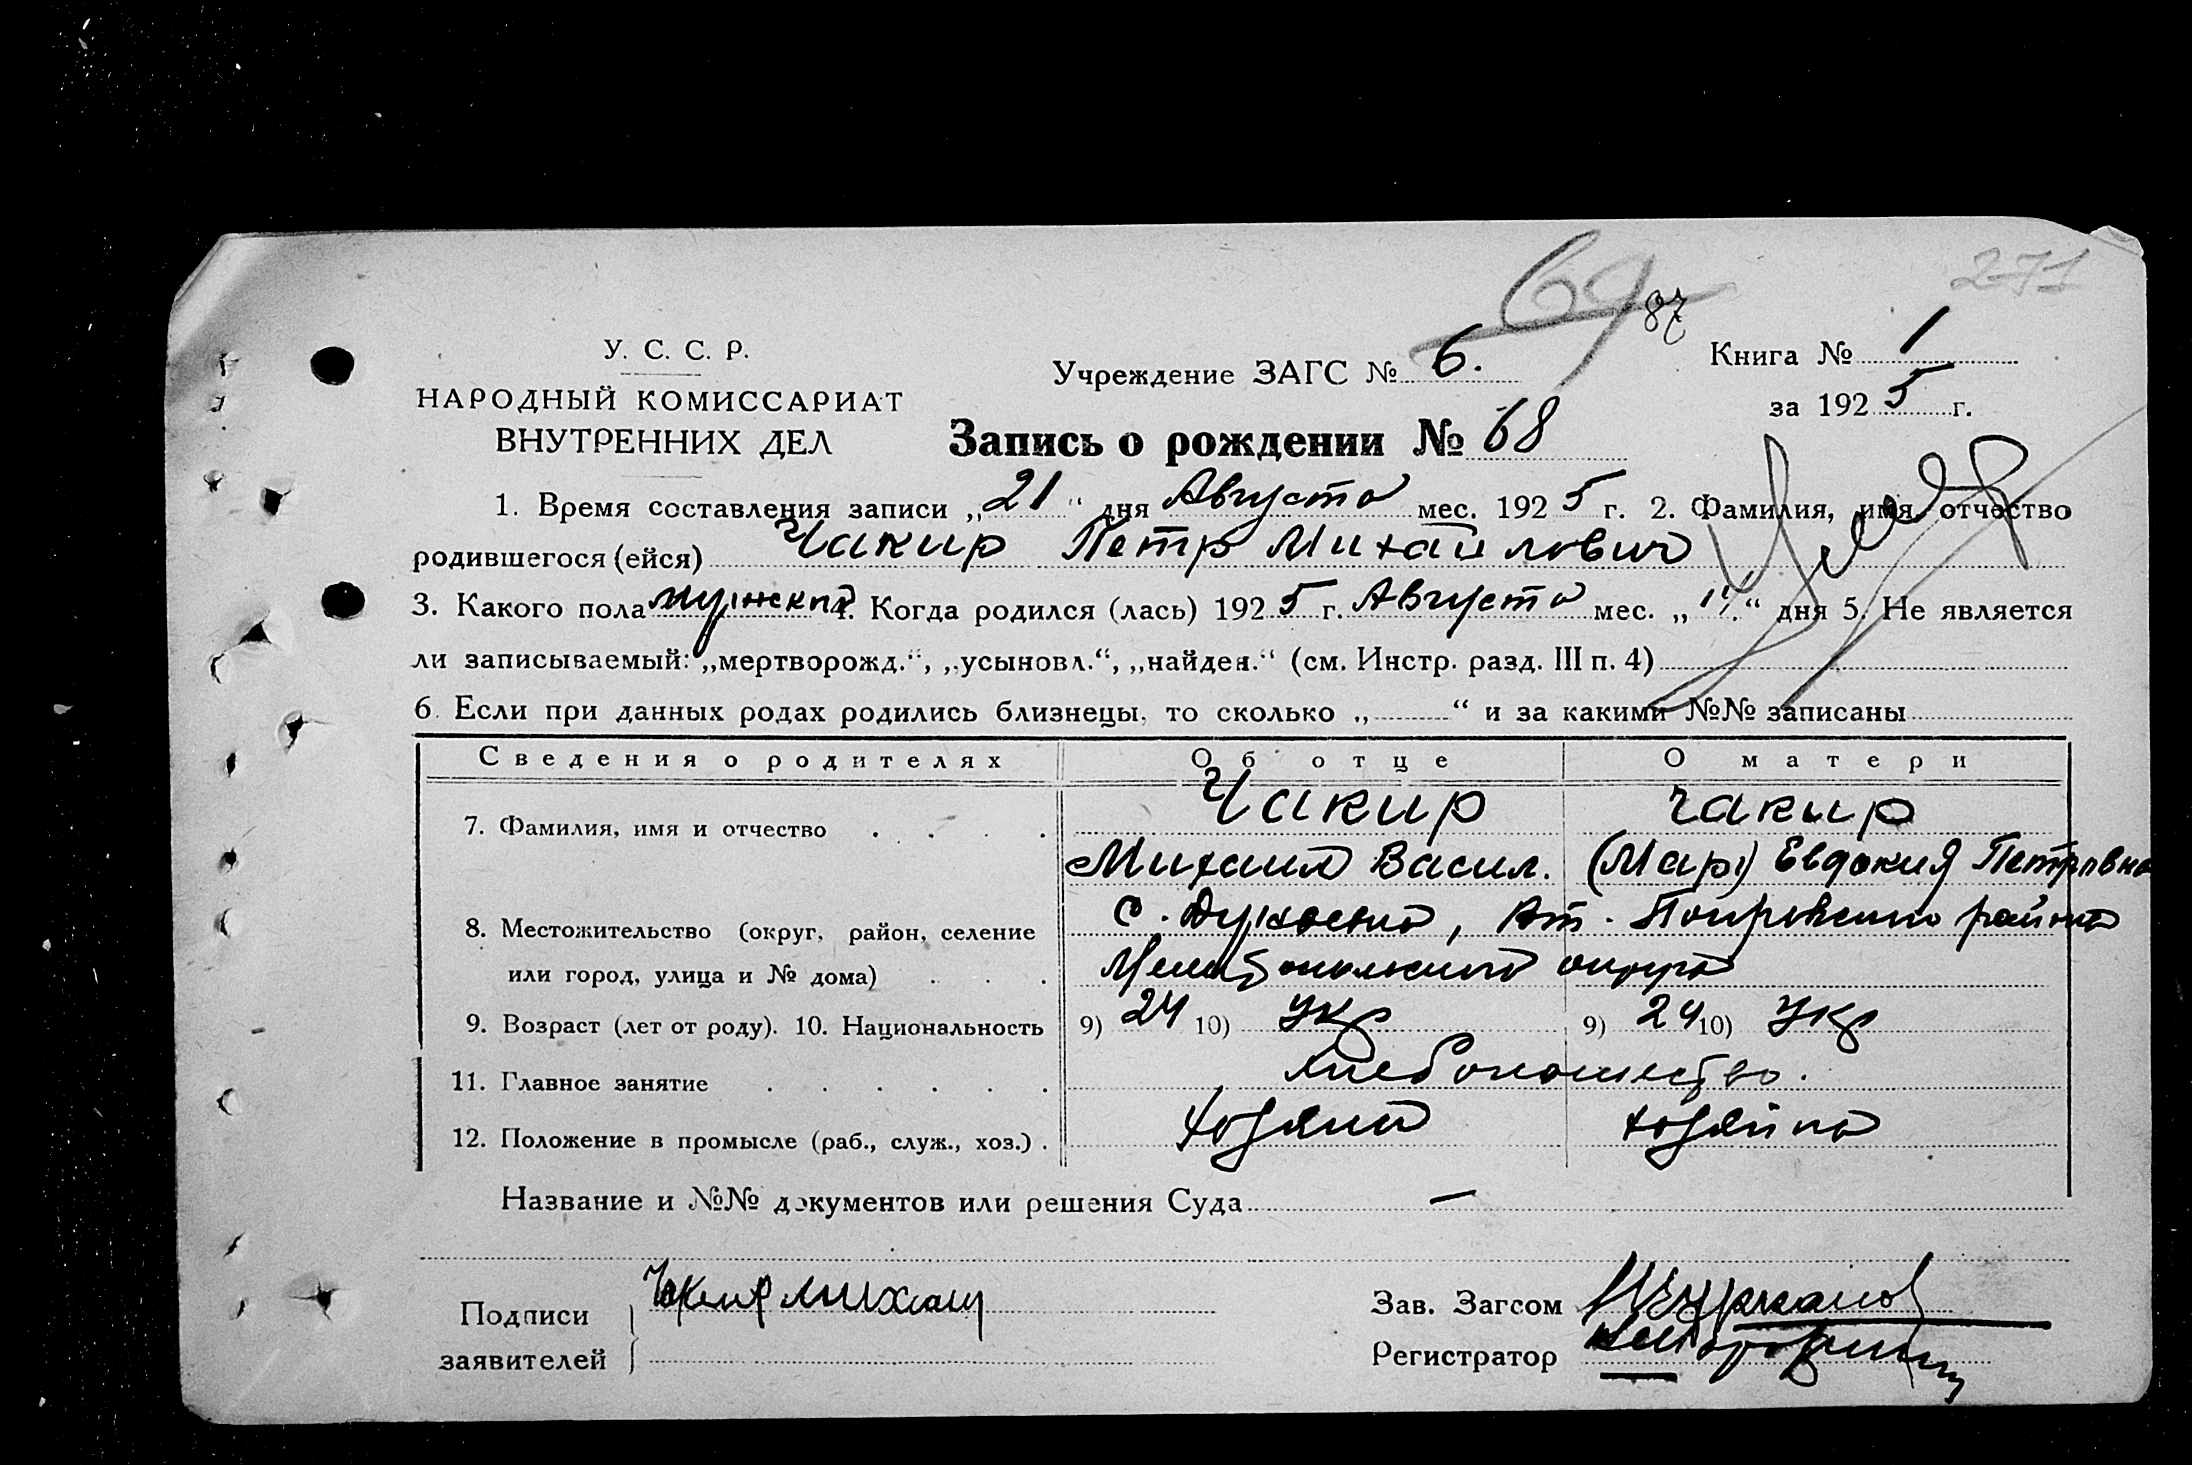 271
69
87
У. С. С. Р.
НАРОДНЫЙ КОМИССАРИАТ
ВНУТРЕННИХ ДЕЛ
Учреждение ЗАГС № 6.
Книга № 1
за 1925 г.
Запись о рождении № 68
1. Время составления записи „21“ дня Августа мес. 1925 г. 2. Фамилия, имя, отчество
родившегося (ейся) Чакир Петр Михайлович
3. Какого пола мужской 4. Когда родился (лась) 1925 г. Августа мес. „ “ дня 5. Не является
ли записываемый: „мертворожд.“, „усыновл.“, „найден.“ (см. Инстр. разд. III п. 4)
6. Если при данных родах родились близнецы, то сколько „ “ и за какими №№ записаны
Сведения о родителях Об отце О матери
7. Фамилия, имя и отчество . . . . Чакир Чакир
Михаил Васил. (Мар) Евдокия Петровна
8. Местожительство (округ, район, селение С. , Ат. Покровского района
или город, улица и № дома) . . . Мелитопольского округа
9. Возраст (лет от роду). 10. Национальность 9) 24 10) Укр 9) 24 10) Укр
11. Главное занятие . . . . . . хлебопашество.
12. Положение в промысле (раб., служ., хоз.) . хозяин хозяйка
Название и №№ документов или решения Суда —
Подписи
заявителей
Чакир Михаил
Зав. Загсом
Регистратор